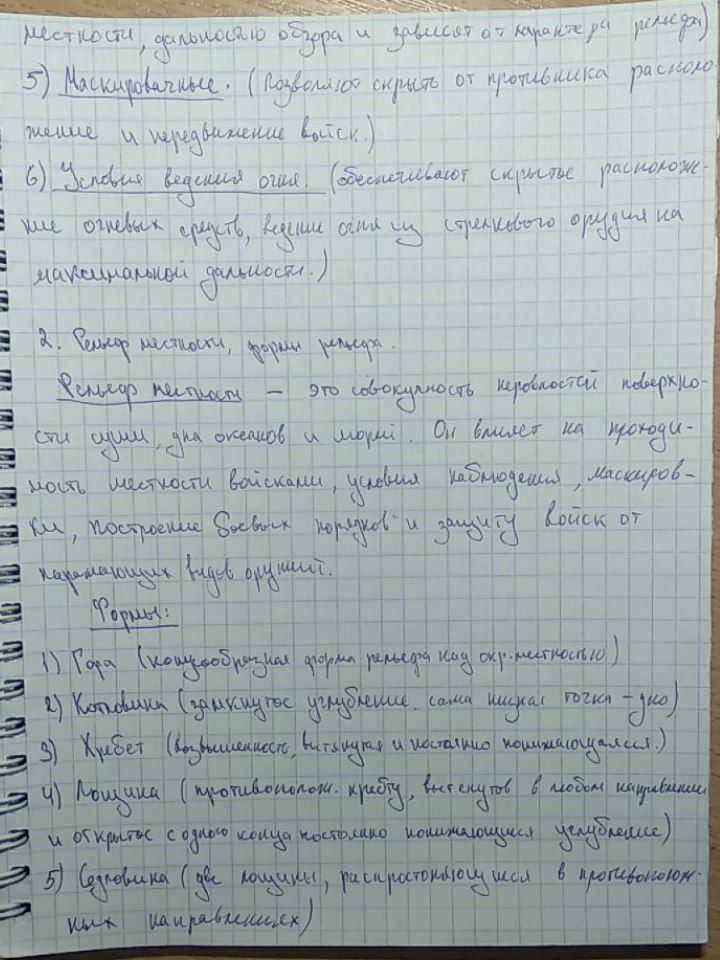 местности, дальностью обзора и зависят от характера рельефа)
5) Маскировачные. (Позволяют скрыть от противника располо-
жение и передвижение войск.)
6) Условия ведения огня. (обеспечивают скрытое расположе-
ние огневых средств, ведение огня из стрелкового орудия на
максимальной дальности.)
2. Рельеф местности, формы рельефа.
Рельеф местности — это совокупность неровностей поверхно-
сти суши, дна океанов и морей. Он влияет на проходи-
мость местности войсками, условия наблюдения, маскиров-
ки, построение боевых порядков и защиту войск от
поражающих видов оружий.
Формы:
1) Гора (конусообразная форма рельефа над окр. местностью)
2) Котловина (замкнутое углубление. сама низкая точка - дно)
3) Хребет (возвышенность, вытянутая и постоянно понижающаяся.)
4) Лощина (противополож. хребту, вытянутое в любом направлении
и открытое с одного конца постоянно понижающееся углубление)
5) Седловина (две лощины, распростоняющиеся в противополож-
ных направлениях)